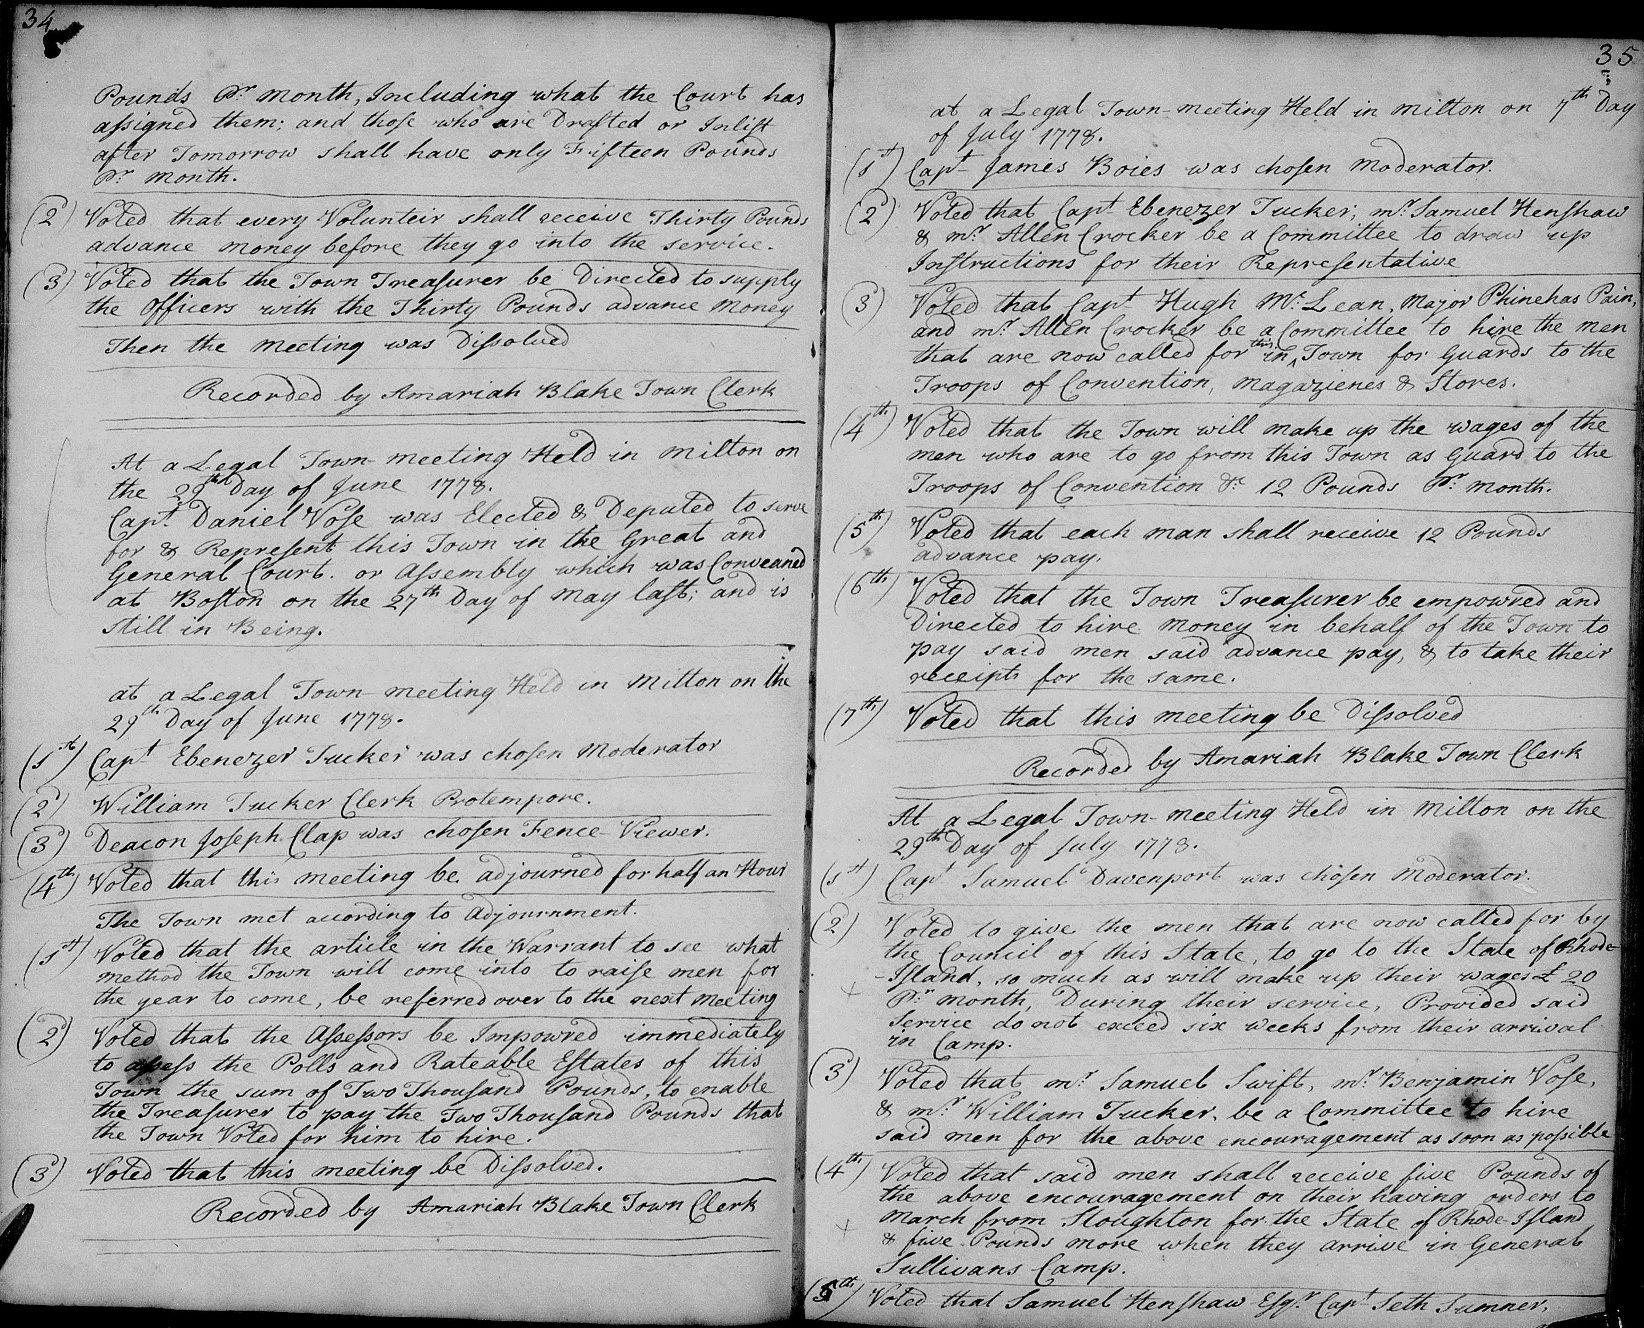 34
Pounds Pr month, Including what the Court has
assigned them; and those who are Drafted or Inlist
after Tomorrow shall have only Fifteen Pounds
Pr month.
(2) Voted that every Volunteir shall receive Thirty Pounds
advance money before they go into the service.
(3) Voted that the Town Treasurer be Directed to supply
the Officers with the Thirty Pounds advance Money
Then the meeting was Dissolved
Recorded by Amariah Blake Town Clerk
At a Legal Town-meeting Held in milton on
the 29th Day of June 1778.
Capt. Daniel Vose was Elected & Deputed to serve
for & Represent this Town in the Great and
General Court. or Assembly which was Conveaned
at Boston on the 27th Day of May last; and is
still in Being.
at a Legal Town-meeting Held in Milton on the
29th Day of June 1778.
(1st) Capt Ebenezer Tucker was chosen Moderator
(2) William Tucker Clerk Protempore.
(3) Deacon Joseph Clap was chosen Fence-Viewer.
(4th) Voted that this meeting be adjourned for half an Hour
The Town met according to Adjournment.
(1st) Voted that the article in the Warrant to see what
method the Town will come into to raise men for
the year to come, be referred over to the next meeting
(2) Voted that the Assessors be Impowred immediately
to assess the Polls and Rateable Estates of this
Town the sum of Two Thousand Pounds, to enable
the Treasurer to pay the Two Thousand Pounds that
the Town Voted for him to hire.
(3) Voted that this meeting be Dissolved.
Recorded by Amariah Blake Town Clerk
35
at a Legal Town-meeting Held in milton on 7th Day
of July 1778.
(1st) Capt James Boies was chosen Moderator.
(2) Voted that Capt Ebenezer Tucker; mr. Samuel Henshaw
& mr. Allen Crocker be a Committee to draw up
Instructions for their Representative
(3) Voted that Capt Hugh Mc.Lean, Major Phinehas Pain,
and mr. Allen Crocker be a Committee to hire the men
that are now called for in this Town for Guards to the
Troops of Convention, magazienes & Stores.
(4th) Voted that the Town will make up the wages of the
men who are to go from this Town as Guard to the
Troops of Convention &c 12 Pounds Pr. month.
(5th) Voted that each man shall receive 12 Pounds
advance pay.
(6th) Voted that the Town Treasurer be empowred and
Directed to hire money in behalf of the Town to
pay said men said advance pay, & to take their
receipts for the same.
(7th) Voted that this meeting be Dissolved
Recorded by Amariah Blake Town Clerk
At a Legal Town-meeting Held in Milton on the
29th Day of July 1778.
(1st) Capt Samuel Davenport was chosen Moderator.
(2) Voted to give the men that are now called for by
the Council of this State, to go to the State of Rhode-
-Island, so much as will make up their wages £ 20
Pr month, During their service, Provided said
service do not exceed six weeks from their arrival
in Camp.
(3) Voted that mr. Samuel Swift, mr. Benjamin Vose,
& mr. William Tucker, be a Committee to hire
said men for the above encouragement as soon as possible
(4th) Voted that said men shall receive five Pounds of
the above encouragement on their having orders to
March from Stoughton for the State of Rhode-Island
& five Pounds more when they arrive in General
Sullivans Camp.
(5th) Voted that Samuel Henshaw Esqr. Capt Seth Sumner,